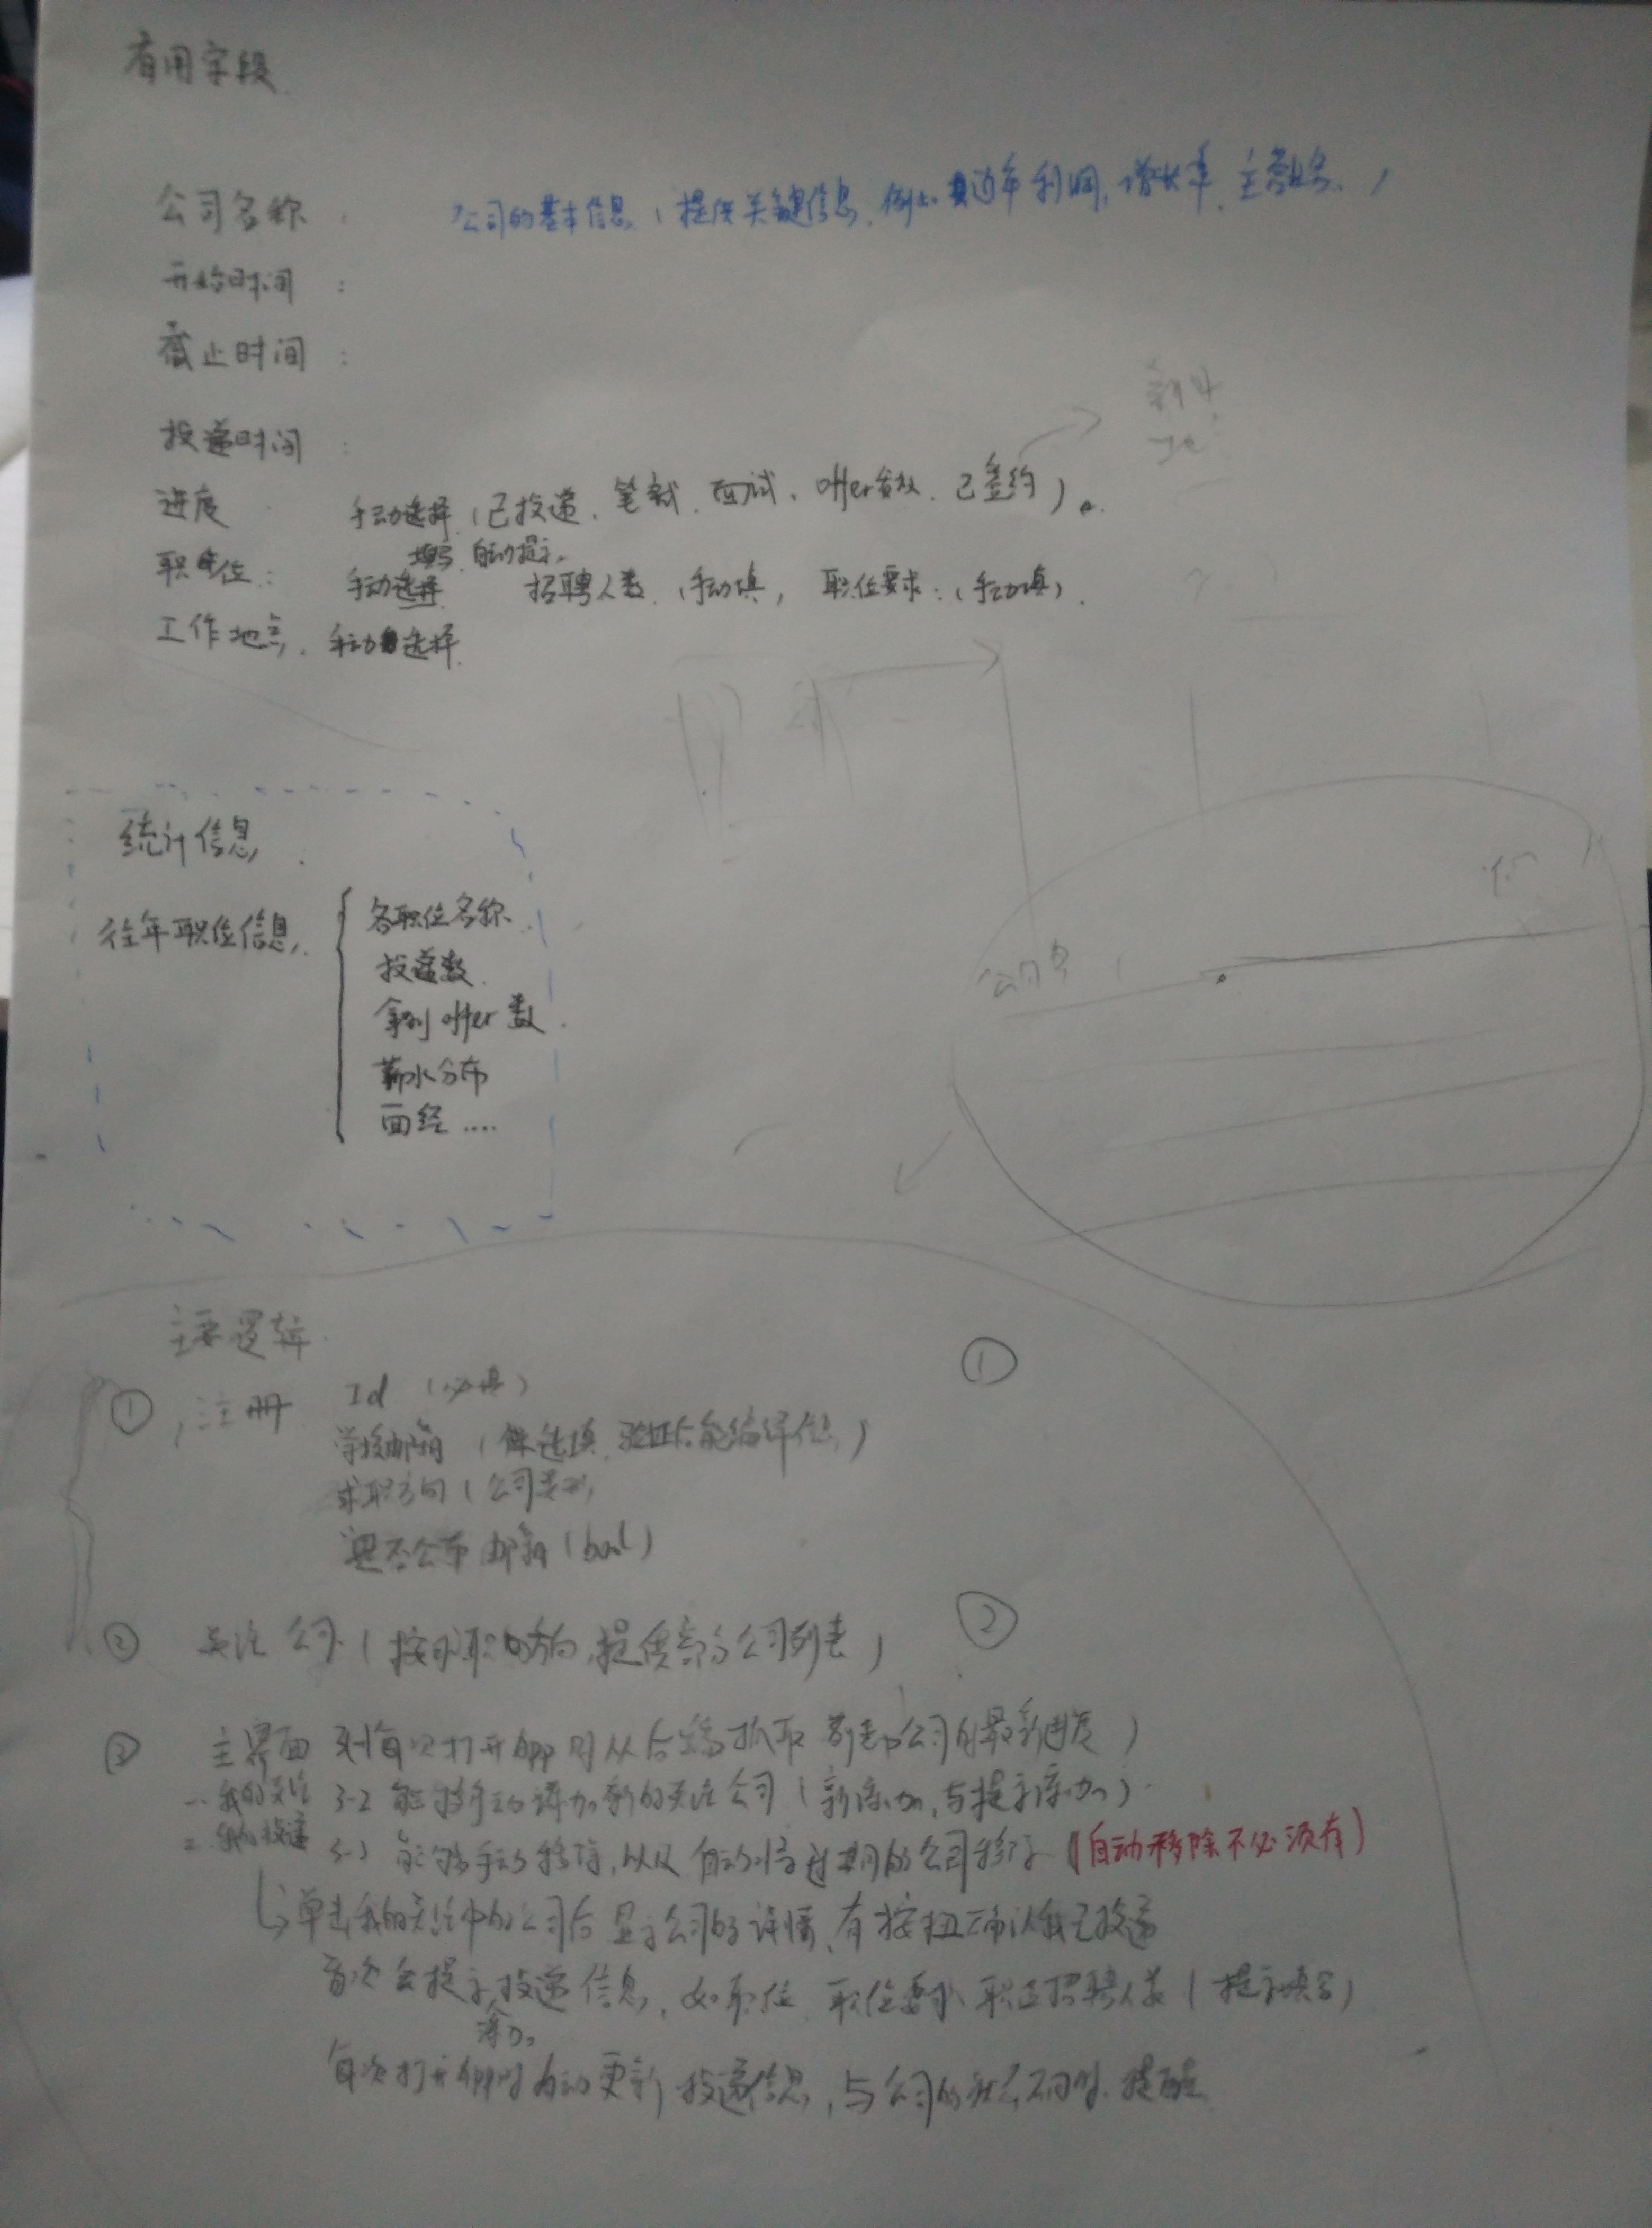 有用字段
公司名称：
公司的基本信息（提供关键信息，例如近年利润，增长率，主营业务）
开始时间：
截止时间：
投递时间：
进度 手动选择（已投递、笔试、面试、offer发放、已签约）。
填写 自动提示。
职位：手动选择 招聘人数（手动填） 职位要求：（手动填）
工作地点，手动选择
统计信息
往年职位信息
各职位名称
投递数
拿到offer数
薪水分布
面经....
公司名
主要逻辑
① ①
注册 Id （必填）
学校邮箱（选填，验证后能编译信）
求职方向（公司类别）
是否公布邮箱（bool）
② 关注公司（按求职方向，提供部分公司列表） ②
③ 主界面 每次打开app时从后端抓取列表中公司的最新进度）
一.我的关注 3-2 能够手动添加新的关注公司（新添加，与提示添加）
二.我的投递 能够手动移除，以及自动将过期的公司移除（自动移除不必须有）
单击我的关注中的公司后显示公司的详情，有按钮确认我已投递
首次会提示投递信息，如职位，职位要求，职位招聘人数（提示填写）
添加
每次打开app时自动更新投递信息，与公司的状态不同时，提醒